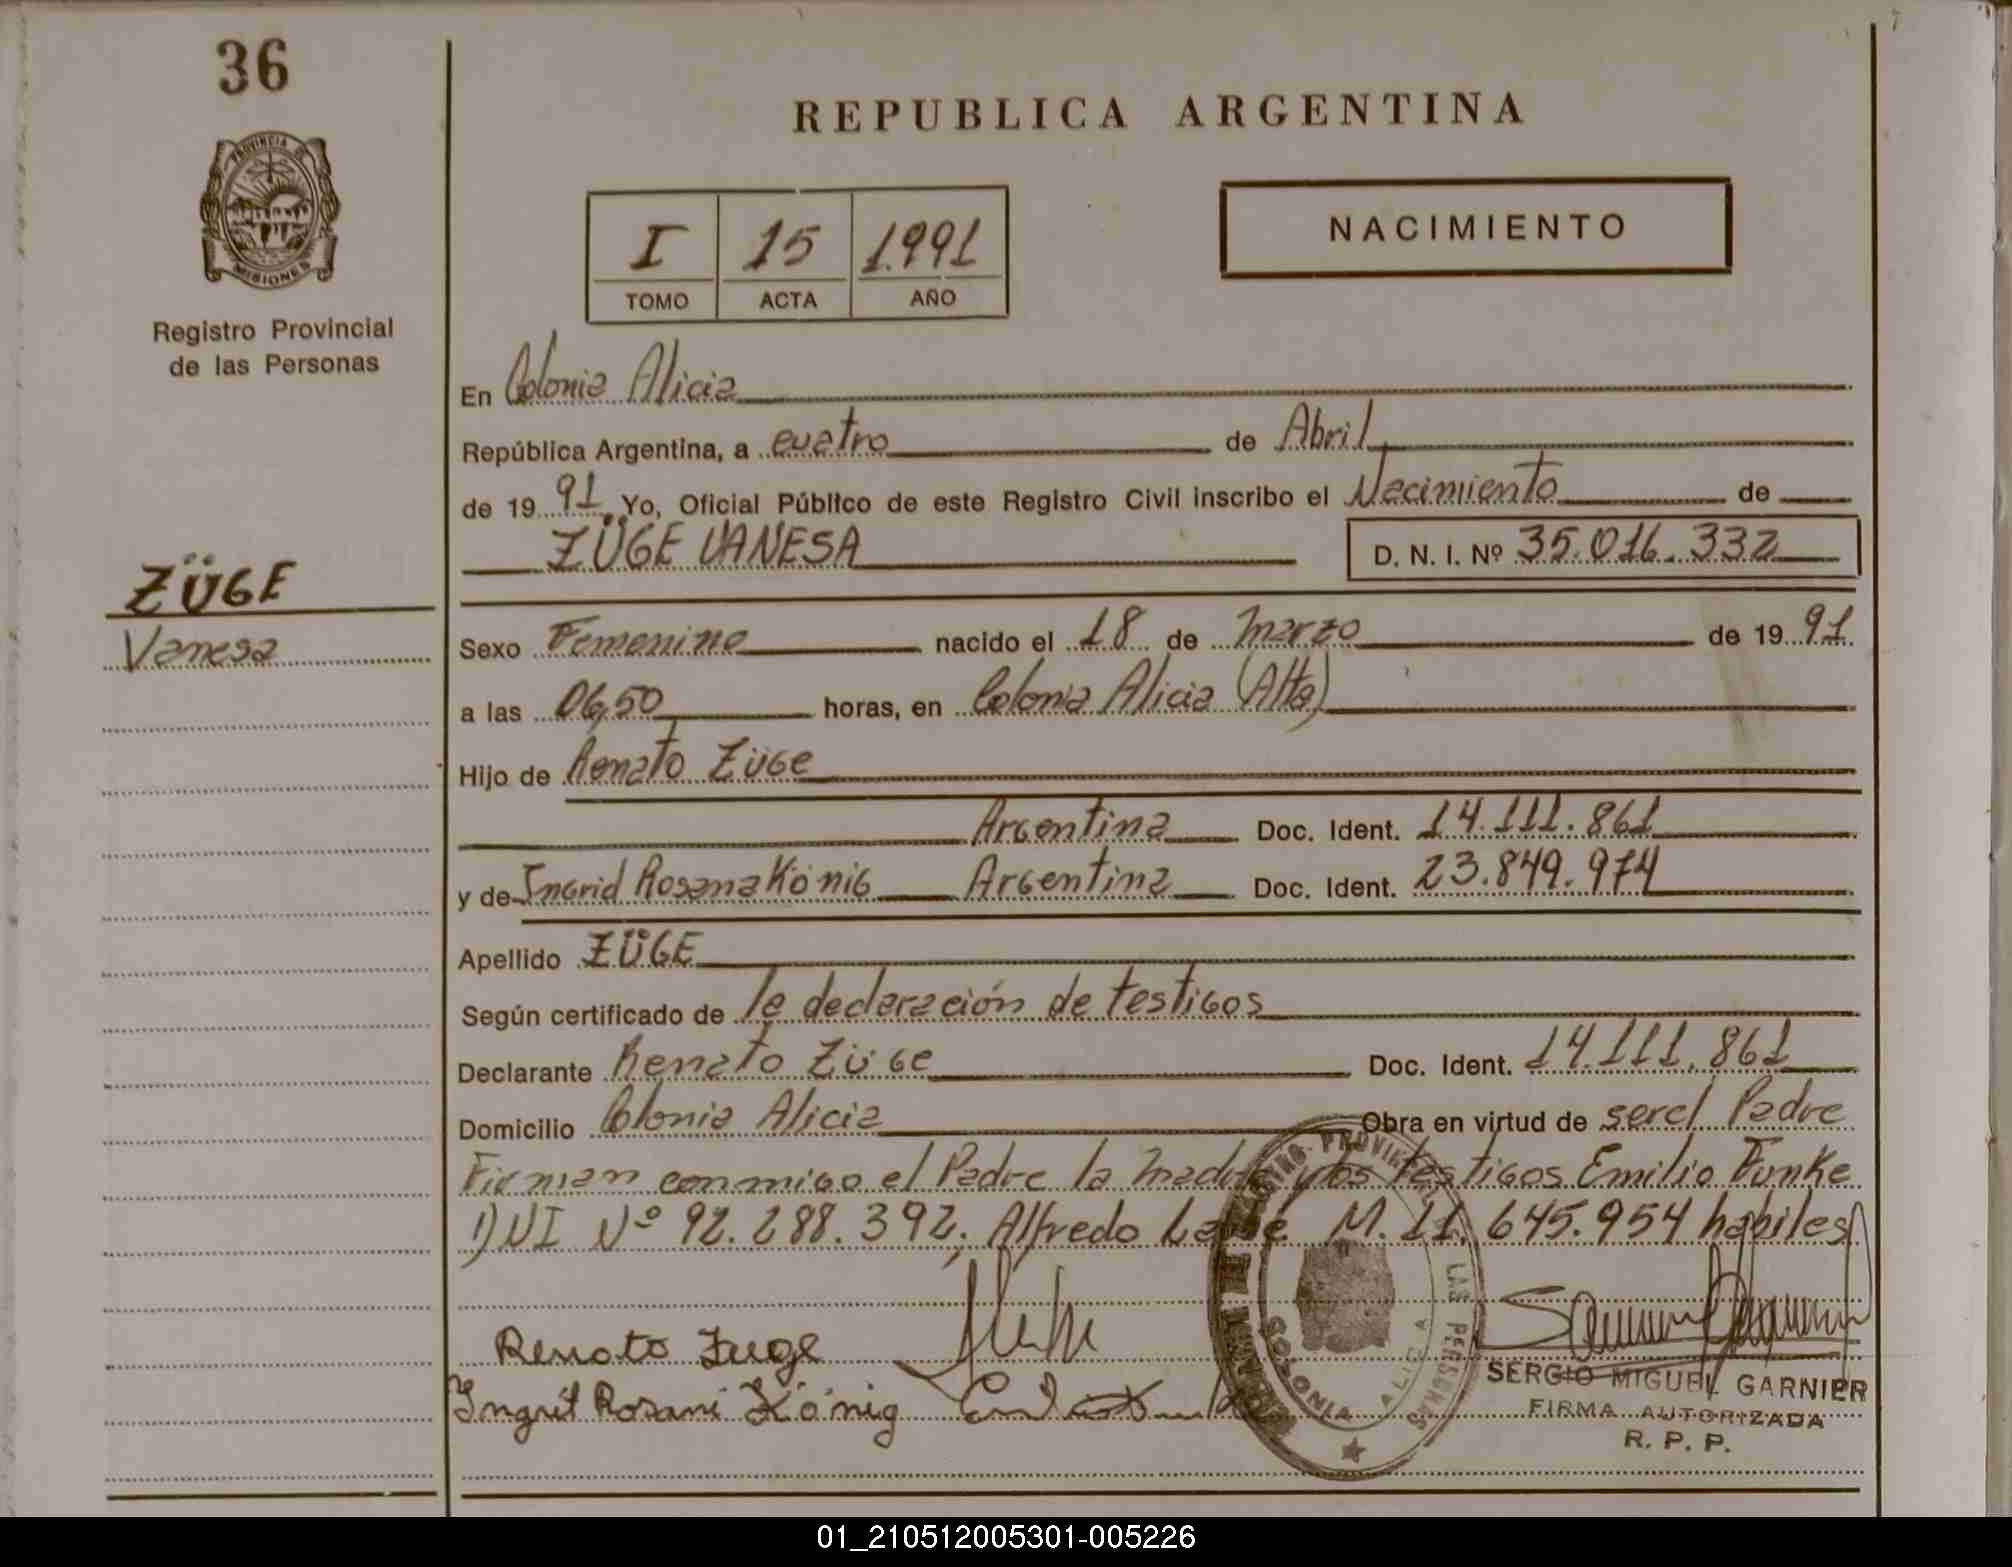 36
REPUBLICA ARGENTINA
PROVINCIA DE
MISIONES
Registro Provincial
de las Personas
I 15 1.991
TOMO ACTA AÑO
NACIMIENTO
En Colonia Alicia
República Argentina, a cuatro de Abril
de 19 91 Yo, Oficial Público de este Registro Civil inscribo el Nacimiento de
ZÜGE VANESA D. N. I. Nº 35.016.332
ZÜGE
Vanesa
Sexo Femenino nacido el 18 de Marzo de 19 91
a las 06,50 horas, en Colonia Alicia (Alta)
Hijo de Renato Züge
Argentina Doc. Ident. 14.111.861
y de Ingrid Rosana König Argentina Doc. Ident. 23.849.974
Apellido ZÜGE
Según certificado de la declaración de testigos
Declarante Renato Züge Doc. Ident. 14.111.861
Domicilio Colonia Alicia Obra en virtud de ser el Padre
Firman conmigo el Padre la Madre y los testigos Emilio Funke
DNI Nº 92.288.392, Alfredo M. 11.645.954 hábiles
Renato Zuge
Ingrit Rosani König
COLONIA ALICIA
LAS PERSONAS
SERGIO MIGUEL GARNIER
FIRMA AUTORIZADA
R. P. P.
01_210512005301-005226